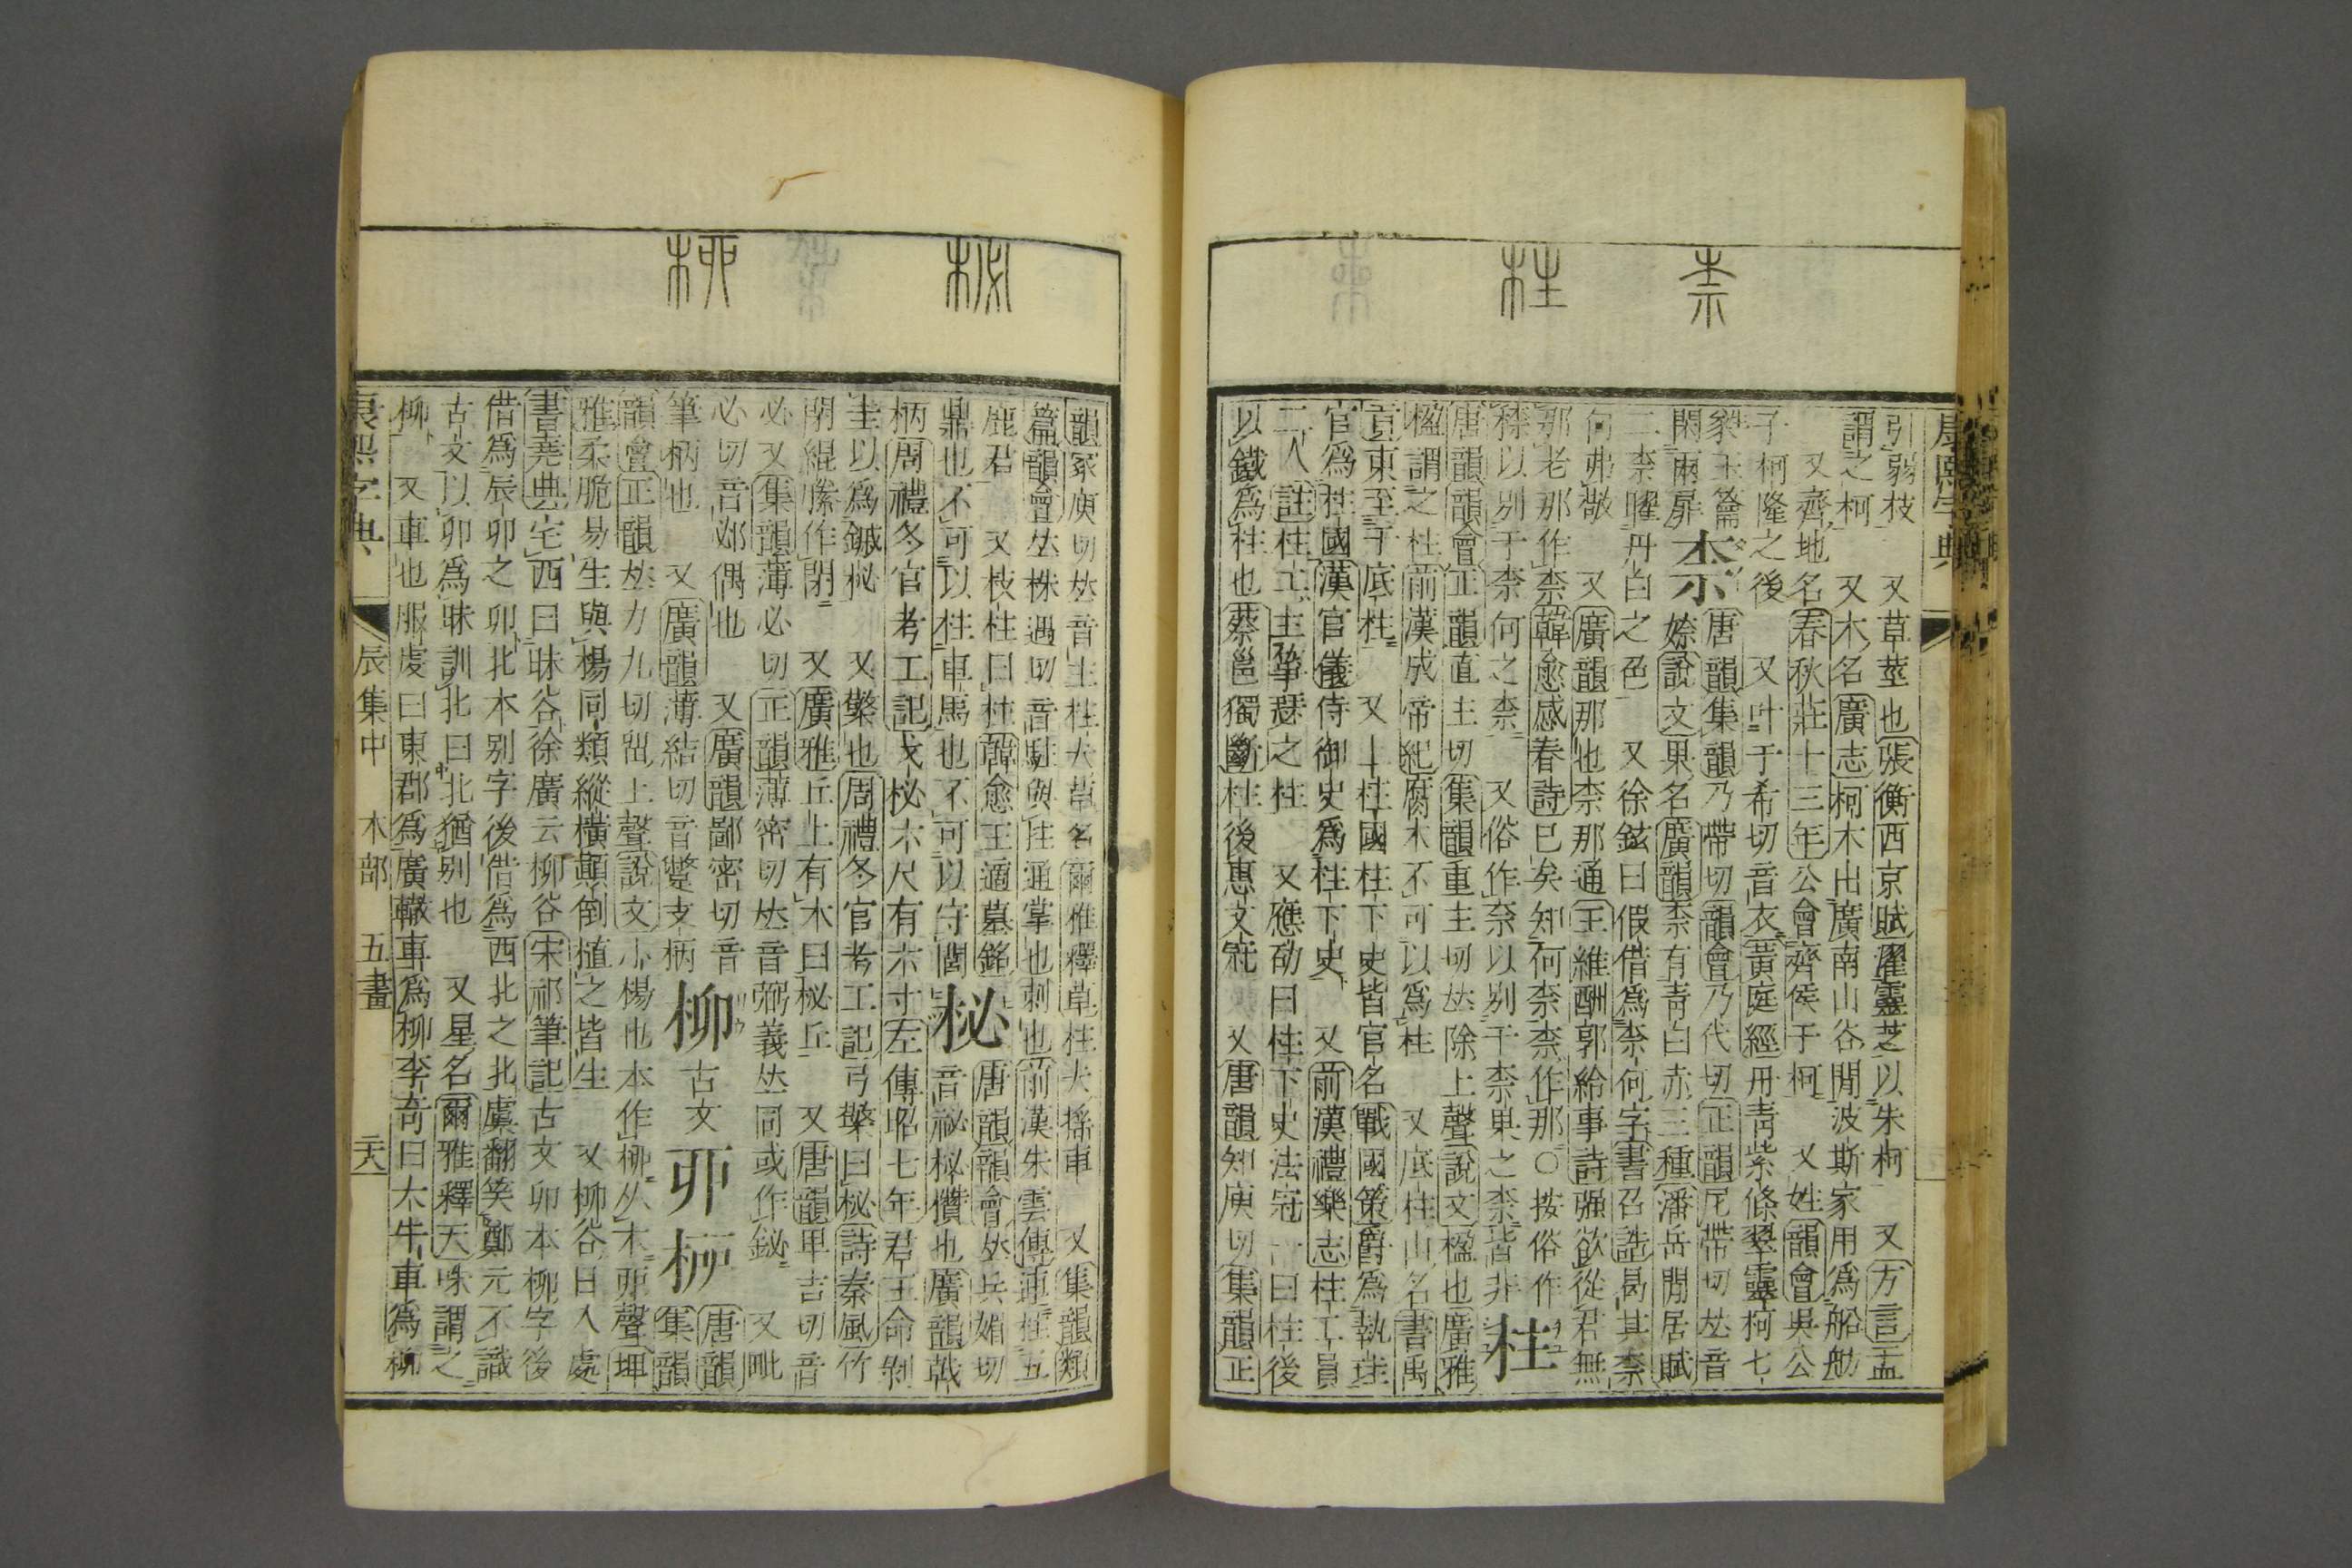 康熙字典
柰
柱
引弱枝 又草莖也張衡西京賦濯靈芝以朱柯 又方言盂
謂之柯 又木名廣志柯木出廣南山谷閒波斯家用爲船舫
又齊地名春秋莊十三年公會齊侯于柯 又姓韻會吳公
子柯隆之後 又叶于希切音衣黃庭經丹靑紫條翠靈柯七
蕤玉籥
閉兩扉
柰
唐韻集韻乃帶切韻會乃代切正韻尼帶切𠀤音
㮈說文果名廣韻柰有靑白赤三種潘岳閒居賦
二柰曜丹白之色 又徐鉉曰假借爲柰何字書召誥曷其柰
何弗敬 又廣韻那也柰那通王維酬郭給事詩强欲從君無
那老那作柰韓愈感春詩已矣知何柰柰作那○按俗作
㮈以别于柰何之柰 又俗作奈以别于柰果之柰皆非
柱
唐韻韻會正韻直主切集韻重主切𠀤除上聲說文楹也廣雅
楹謂之柱前漢成帝紀腐木不可以爲柱 又底柱山名書禹
貢東至于底柱 又上柱國柱下史皆官名戰國策爵爲執珪
官爲柱國漢官儀侍御史爲柱下史 又前漢禮樂志柱工員
二人註柱工主箏瑟之柱 又應劭曰柱下史法冠一曰柱後
以鐵爲柱也蔡邕獨斷柱後惠文冠 又唐韻知庾切集韻正
柲
桺
韻冢庾切𠀤音主柱夫草名爾雅釋草柱夫搖車 又集韻類
篇韻會𠀤株遇切音駐與拄通掌也刺也前漢朱雲傳連拄五
鹿君 又枝柱曰柱韓愈王適墓銘
鼎也不可以柱車馬也不可以守閭
柲
唐韻韻會𠀤兵媚切
音祕柲欑也廣韻戟
柄周禮冬官考工記戈柲六尺有六寸左傳昭七年君王命剝
圭以爲鏚柲 又檠也周禮冬官考工記弓檠曰柲詩秦風竹
閉緄縢作閉 又廣雅丘上有木曰柲丘 又唐韻畢吉切音
必又集韻薄必切正韻薄密切𠀤音弼義𠀤同或作鉍 又毗
必切音邲偶也 又廣韻鄙密切音
筆柄也 又廣韻薄結切音蹩支柄
柳 古文 丣 桺
唐韻
集韻
韻會正韻𠀤力九切 上聲說文小楊也本作桺从木丣聲埤
雅柔脆易生與楊同類縱橫顚倒植之皆生 又柳谷日入處
書堯典宅西曰昧谷徐廣云柳谷宋祁筆記古文卯本柳字後
借爲辰卯之卯北本别字後借爲西北之北虞翻笑鄭元不識
古文以卯爲昧訓北曰北猶别也 又星名爾雅釋天咮謂之
柳 又車也服虔曰東郡爲廣轍車爲柳李奇曰大牛車爲柳
康熙字典 辰集中 木部 五畫 二十八